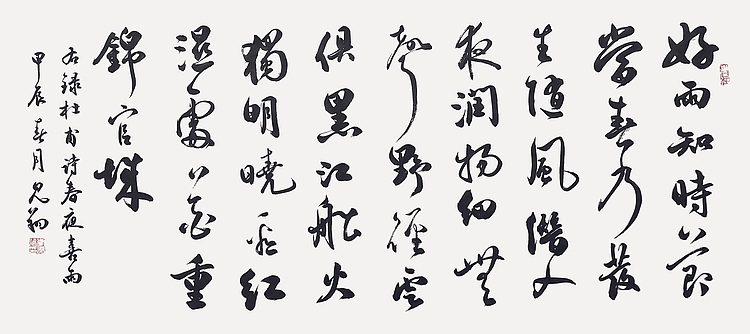 好雨知時節
當春乃發
生隨風潛入
夜潤物細無
聲野徑雲
俱黑江船火
獨明曉看紅
濕處花重
錦官城
右録杜甫詩春夜喜雨
甲辰春月